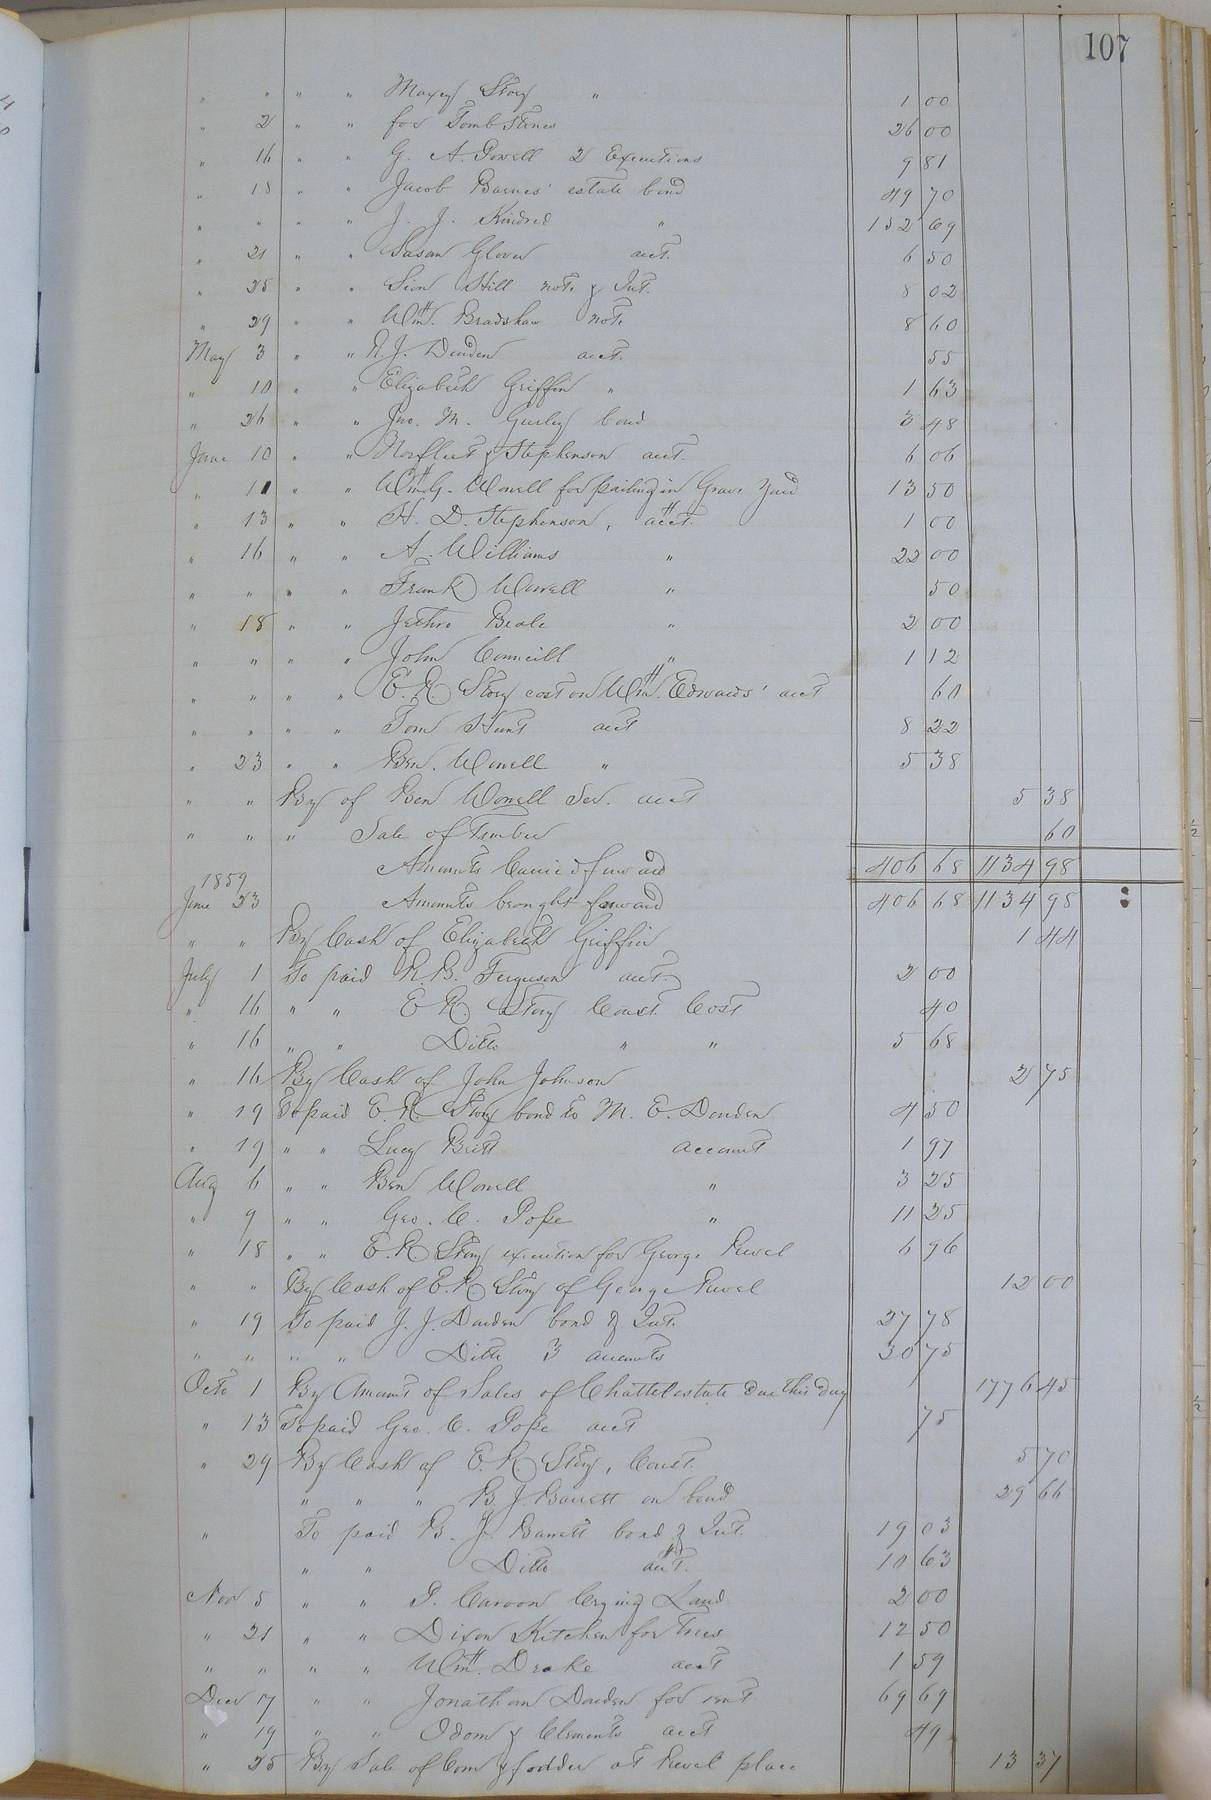 107
" " " " Maxey Story " 1 00
" 2 " " for Tomb Stones 26 00
" 16 " " G. A. Powell 2 Executions 9 81
" 18 " " Jacob Barnes' estate bond 49 70
" " " " J. J. Kindred " 152 69
" 21 " " Susan Glover act. 6 50
" 25 " " Sion Hill note & Int. 8 02
" 29 " " Wm. Bradshaw note 8 60
May 3 " " R. J. Darden acct. 55
" 10 " " Elizabeth Griffin " 1 63
" 26 " " Jno. M. Gurley bond 3 48
June 10 " " Norfleet & Stephenson acct. 6 06
" 11 " " Wm G. Worrell for pailing in Grave Yard 13 50
" 13 " " H. D. Stephenson, acct. 1 00
" 16 " " A. Williams " 22 00
" " " " Frank Worrell " 50
" 18 " " Jethro Beale " 2 00
" " " " John Councill " 1 12
" " " " E. R. Story cost on Wm. Edwards' acct 60
" " " " Tom Hunt acct 8 22
" 23 " " Ben. Worrell " 5 38
" " By of Ben Worrell Sr. acct 5 38
" " " Sale of Timber 60
Amounts Carried forward 406 68 1134 98
1859
June 23 Amounts brought forward 406 68 1134 98
" " By Cash of Elizabeth Griffin 1 44
July 1 To paid R. B. Ferguson acct. 2 00
" 16 " " E R Story Const. Cost 40
" 16 " " Ditto " " 5 68
" 16 By Cash of John Johnson 2 75
" 19 To paid E. R. Story bond to M. E. Darden 4 50
" 19 " " Lucy Britt account 1 97
Aug 6 " " Ben Worrell " 3 25
" 9 " " Geo. C. Pope " 11 25
" 18 " " E. R Story execution for George Revel 6 96
" " By Cash of E. R Story of George Revel 12 00
" 19 To paid J. J. Darden bond & Int. 27 78
" " " " Ditto 3 accounts 30 75
Octo 1 By Amount of Sales of Chattel estate due this day 1776 45
" 13 To paid Geo. C. Pope acct 75
" 29 By Cash of E. R. Story, Const. 5 70
" " " B. J. Barrett on bond 29 66
" To paid B. J. Barrett bond & Int. 19 03
" " Ditto act. 10 63
Nov 5 " " P. Caroon Crying Land 2 00
" 21 " " Dixon Kitchen for Trees 12 50
" " " " Wm. Drake acct 1 59
Decr 17 " " Jonathan Darden for rent 69 69
" 19 " " Odom & Clements acct 49
" 25 By Sale of Corn & fodder at Revel place 13 37